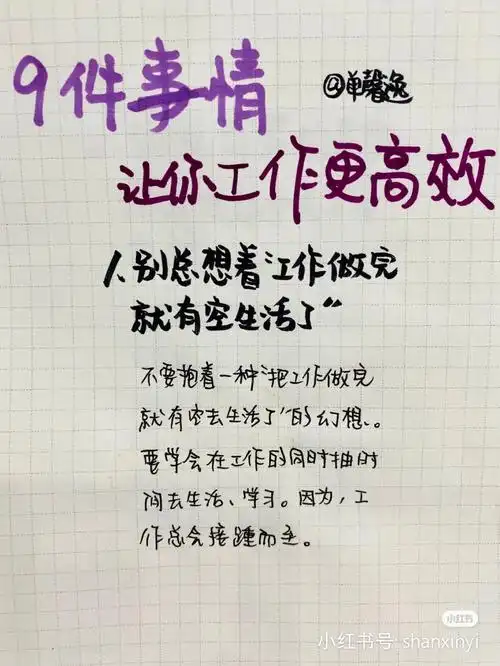 9件事情
@单馨逸
让你工作更高效
1、别总想着"工作做完
就有空生活了"
不要抱着一种"把工作做完
就有空去生活了"的幻想。
要学会在工作的同时抽时
间去生活、学习。因为,工
作总会接踵而至。
小红书
小红书号: shanxinyi